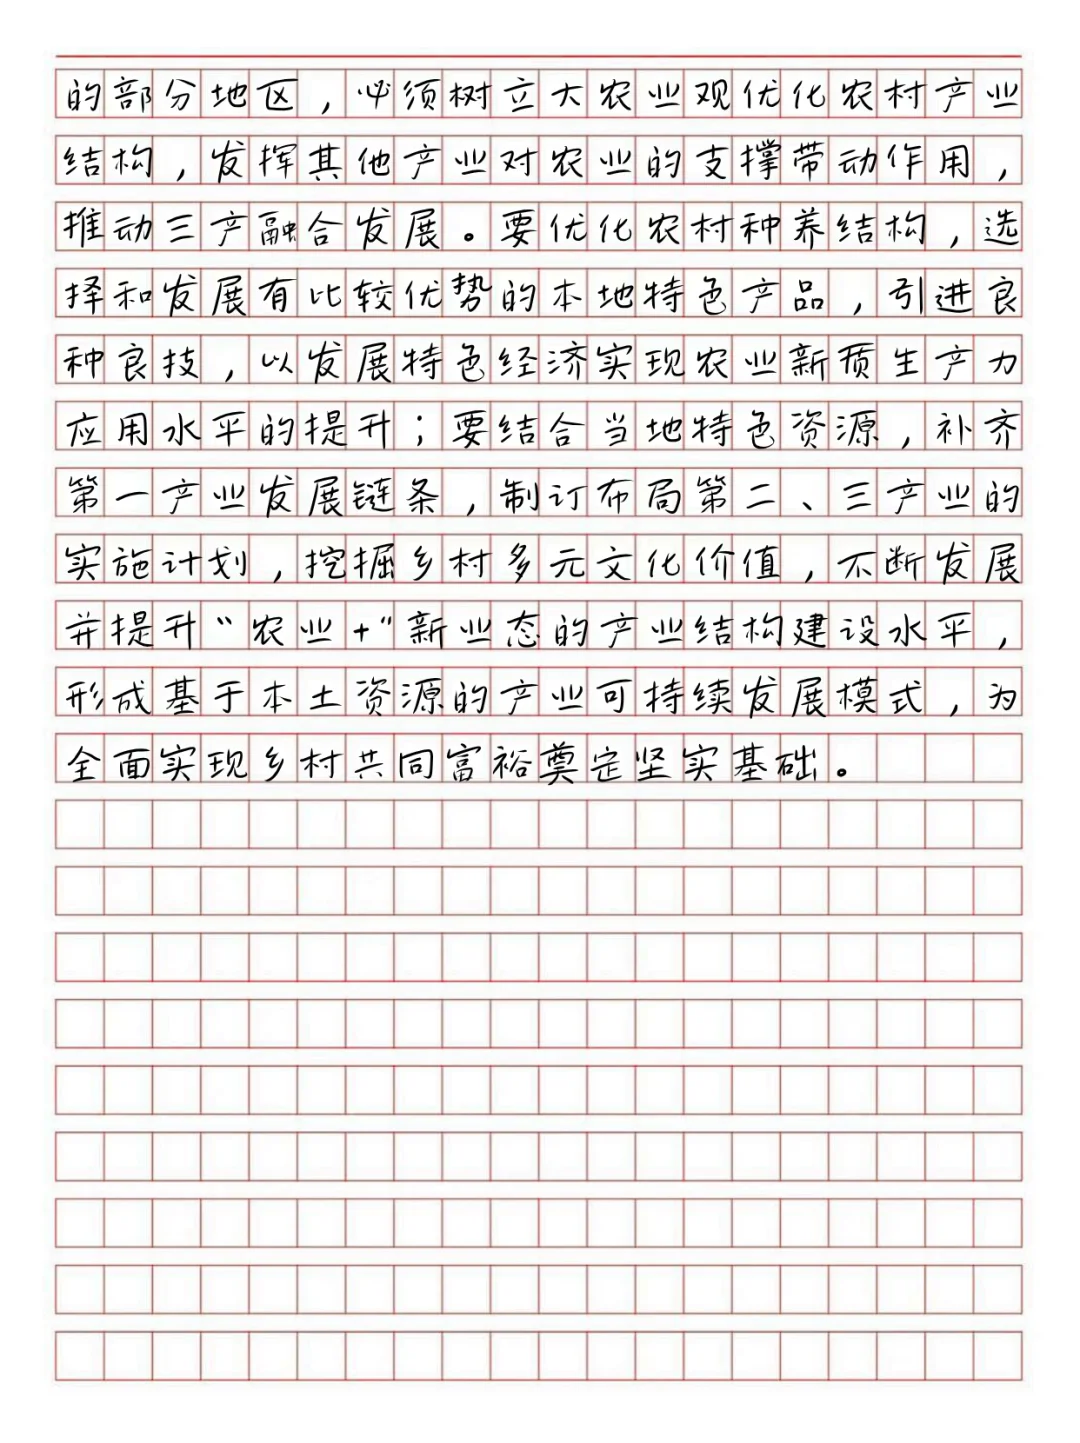 的部分地区，必须树立大农业观优化农村产业
结构，发挥其他产业对农业的支撑带动作用，
推动三产融合发展。要优化农村种养结构，选
择和发展有比较优势的本地特色产品，引进良
种良技，以发展特色经济实现农业新质生产力
应用水平的提升；要结合当地特色资源，补齐
第一产业发展链条，制订布局第二、三产业的
实施计划，挖掘乡村多元文化价值，不断发展
并提升“农业+”新业态的产业结构建设水平，
形成基于本土资源的产业可持续发展模式，为
全面实现乡村共同富裕奠定坚实基础。